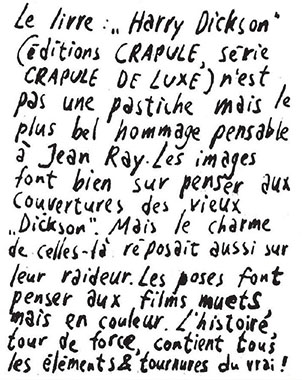 Le livre : „Harry Dickson"
(éditions CRAPULE, série
CRAPULE DE LUXE) n'est
pas une pastiche mais le
plus bel hommage pensable
à Jean Ray. Les images
font bien sur penser aux
couvertures des vieux
„Dickson". Mais le charme
de celles-là réposait aussi sur
leur raideur. Les poses font
penser aux films muets,
mais en couleur. L'histoire,
tour de force, contient tous
les éléments & tournures du vrai !